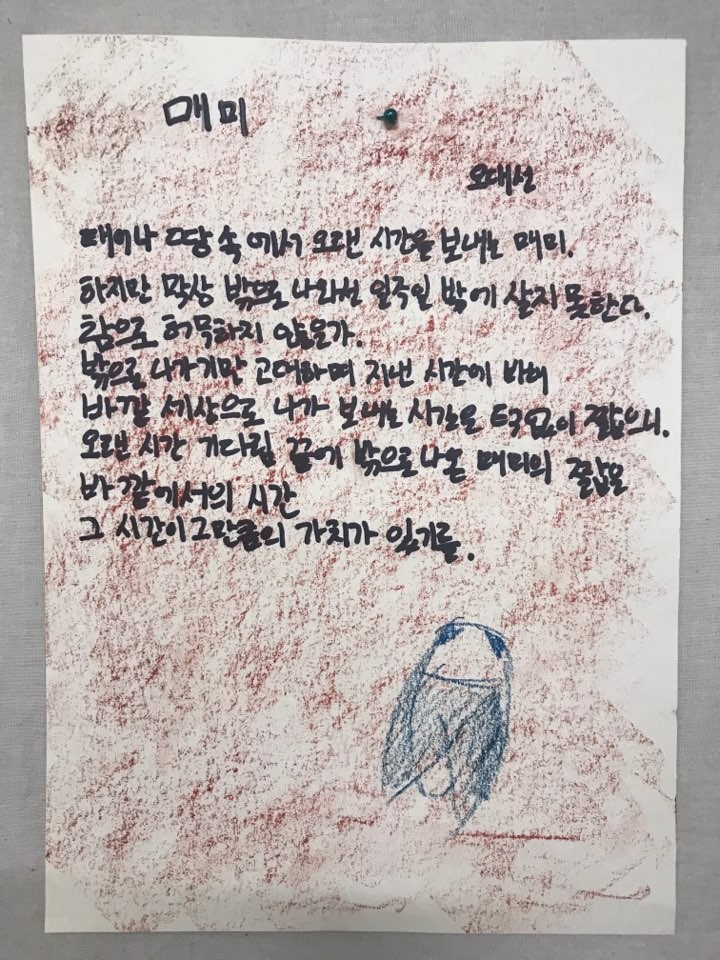 매미
오대선
땅 속에서 오랜 시간을 보내는 매미.
하지만 막상 밖으로 나와선 일주일 밖에 살지 못한다.
참으로 허무하지 않은가.
밖으로 나가기만 고대하며 지낸 시간에 비해
바깥 세상으로 나가 보내는 시간은 턱없이 짧으니.
오랜 시간 기다림 끝에 밖으로 나온 매미의 짧은
바깥에서의 시간
그 시간이 그만큼의 가치가 있기를.